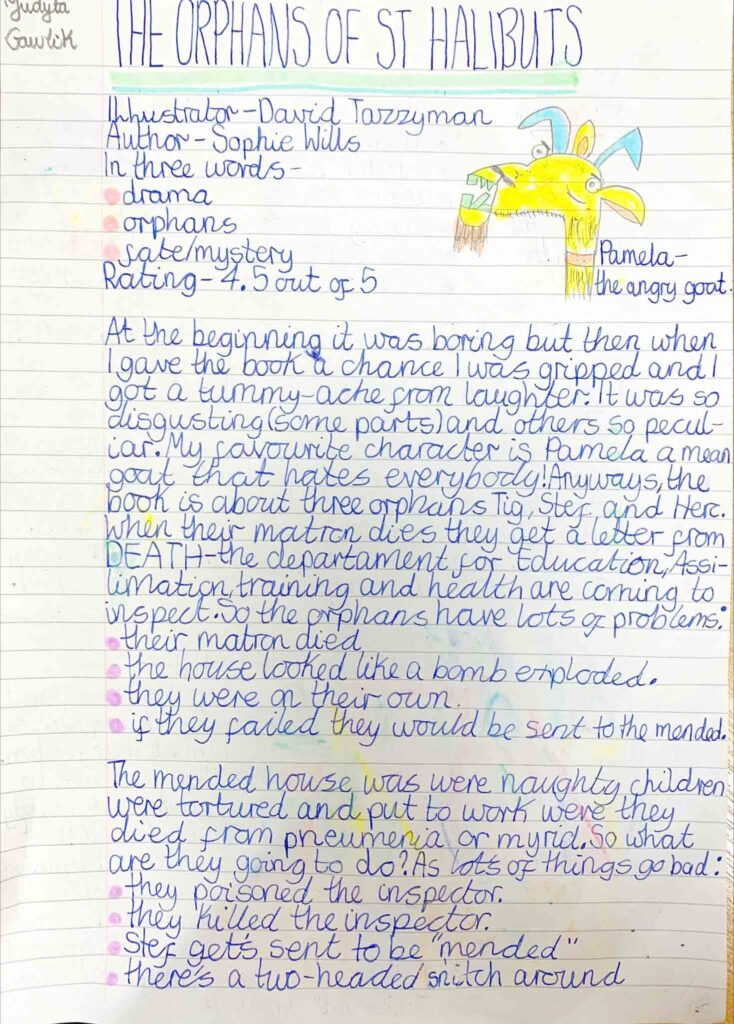 Judyta
Gawlik
THE ORPHANS OF ST HALIBUTS
Illhustrator - David Tazzyman
Author - Sophie Wills
In three words -
drama
orphans
fate/mystery
Rating - 4.5 out of 5
Pamela -
the angry goat.
At the beginning it was boring but then when
I gave the book a chance I was gripped and I
got a tummy-ache from laughter. It was so
disgusting (some parts) and others so pecul-
iar. My favourite character is Pamela a mean
goat that hates everybody! Anyways, the
book is about three orphans Tig, Stef and Herc.
When their matron dies they get a letter from
DEATH - the departament for Education, Assi-
limation, training and health are coming to
inspect. So the orphans have lots of problems:
their matron died
the house looked like a bomb exploded.
they were on their own.
if they failed they would be sent to the mended.
The mended house was were naughty children
were tortured and put to work were they
died from pneumenia or myrid. So what
are they going to do? As lots of things go bad:
they poisoned the inspector.
they killed the inspector.
Stef get's sent to be "mended"
there's a two-headed snitch around